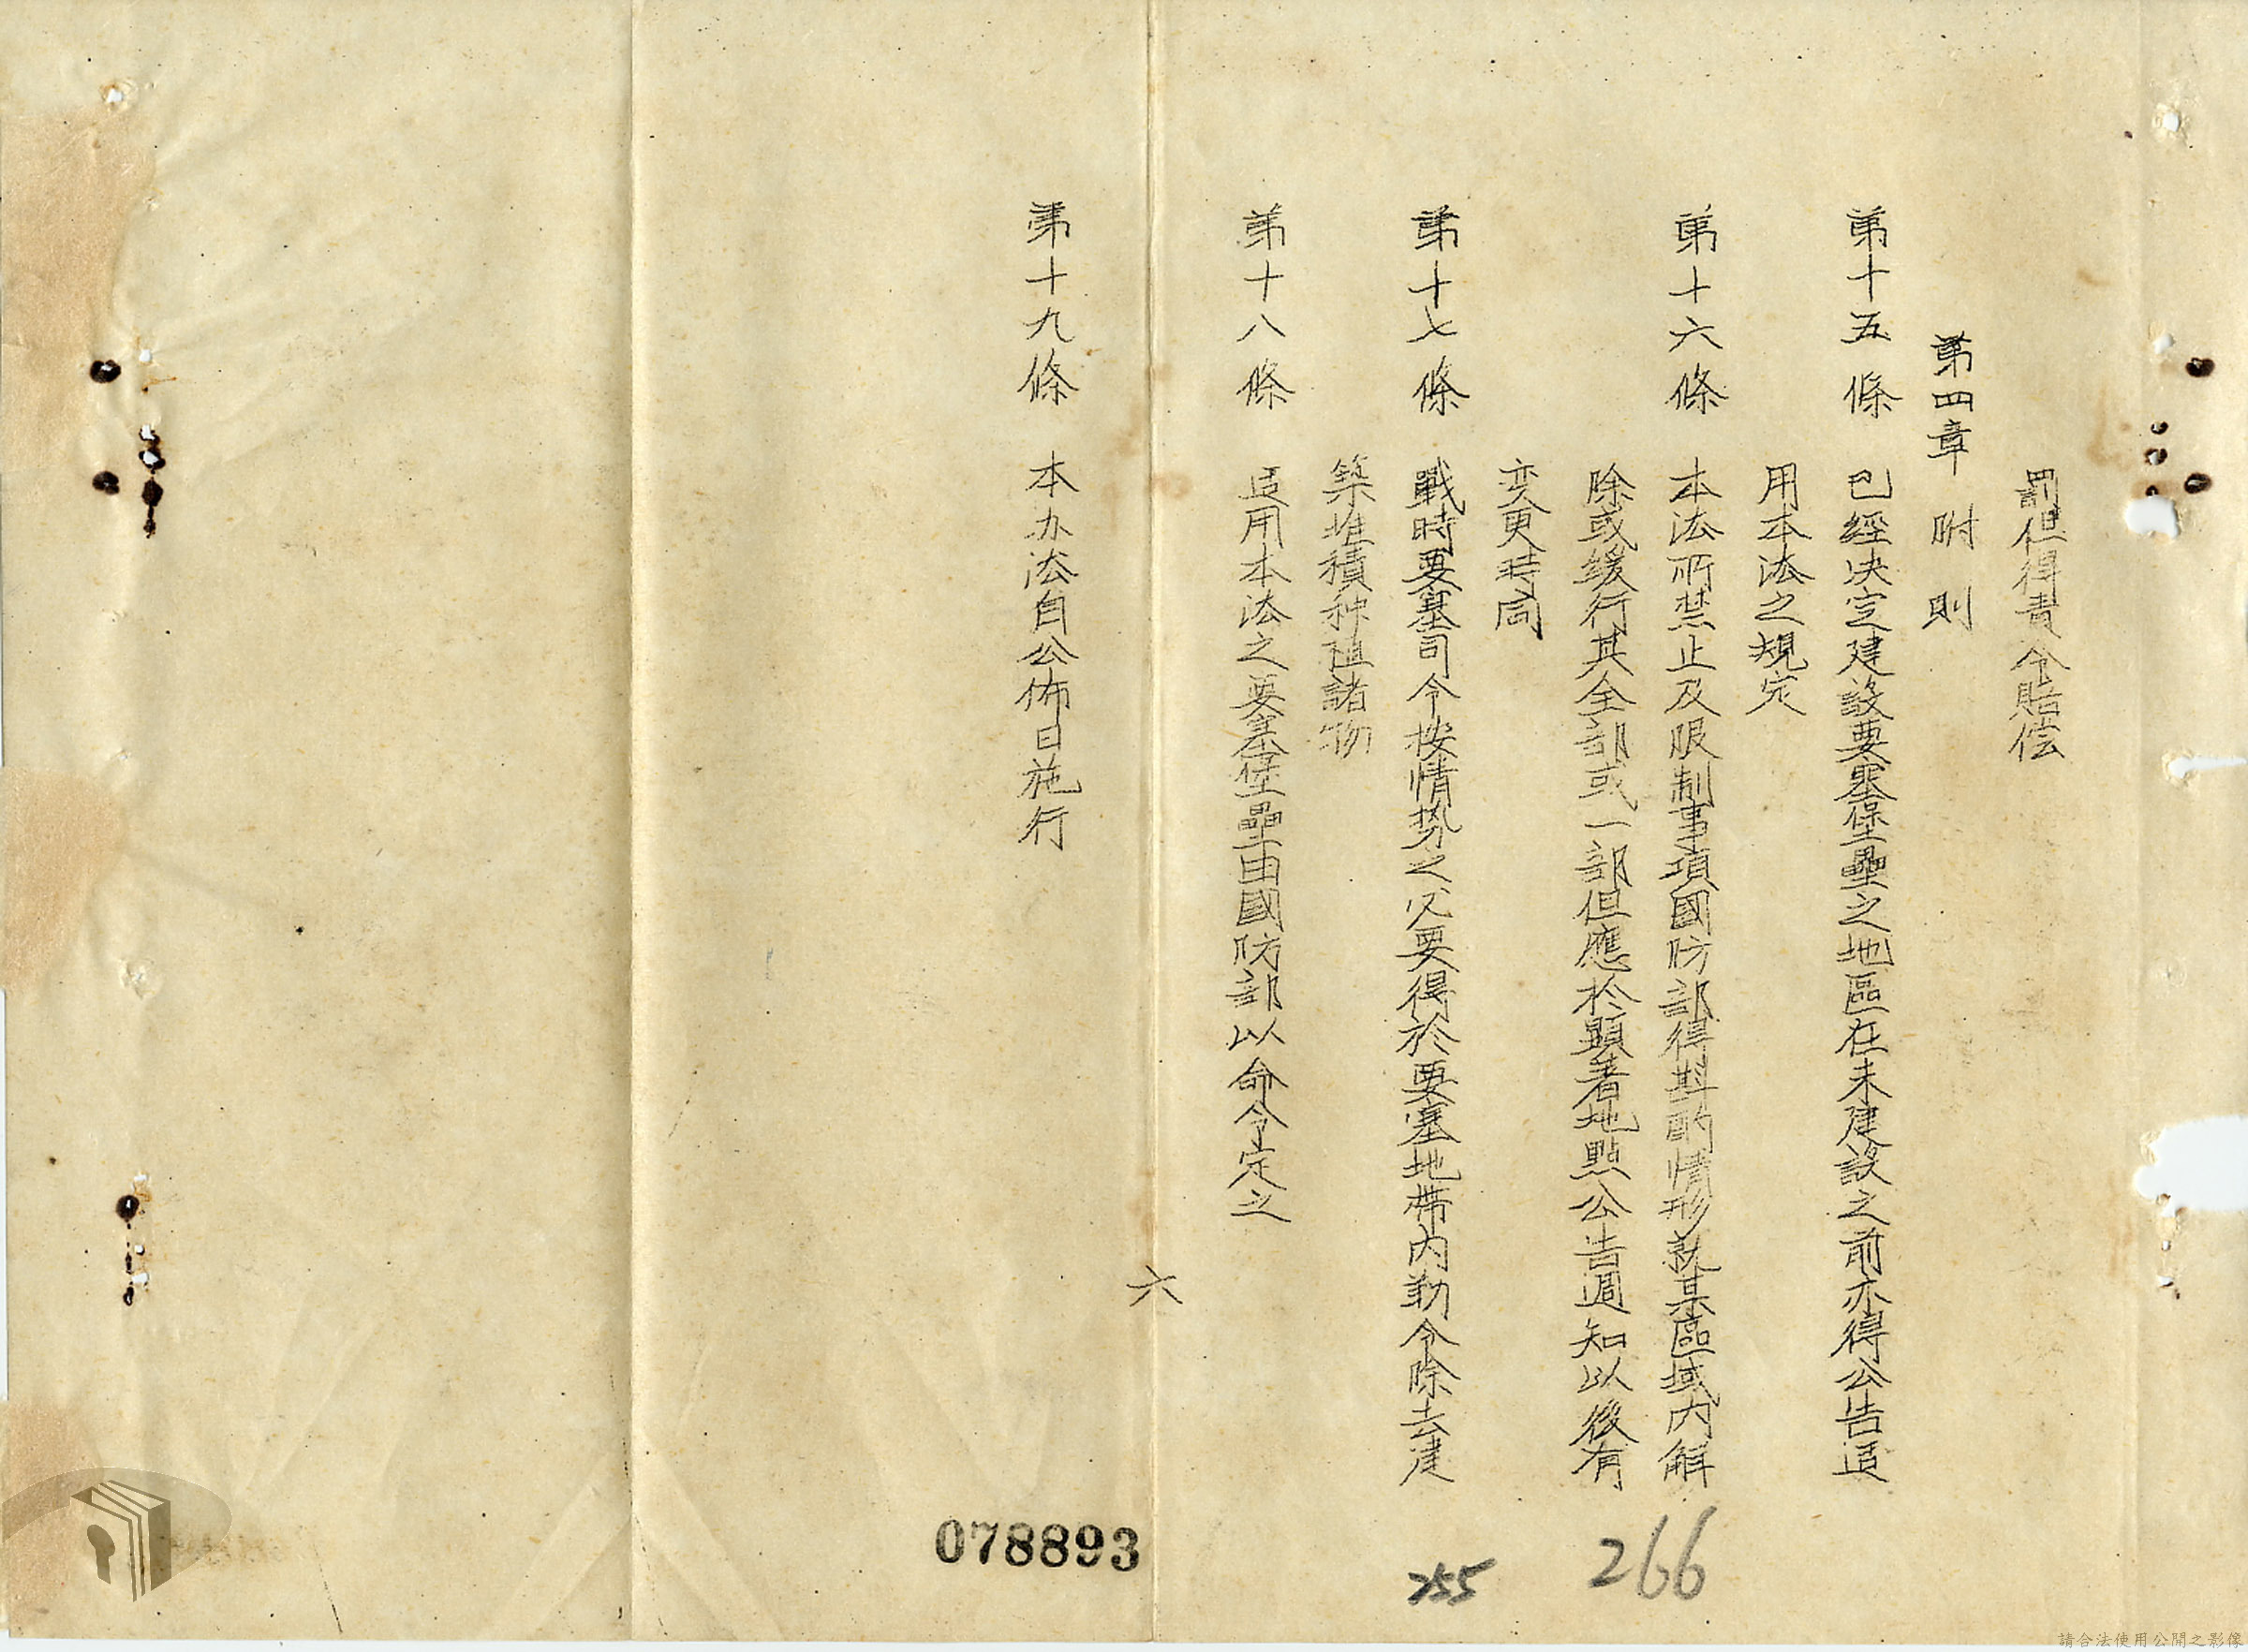 罰但得責令賠偿
第四章　附　則
第十五條　已經决定建設要塞堡壘之地區在未建設之前亦得公告适
用本法之規定
第十六條　本法所禁止及限制事項國防部得斟酌情形就某區域内解
除或缓行其全部或一部但應於顕著地點公告週知以後有
变更時同
第十七條　戰時要塞司令按情势之必要得於要塞地帶内勒令除去建
築堆積种植諸物
第十八條　适用本法之要塞堡壘由國防部以命令定之
六
第十九條　本办法自公佈日施行
078893
255
266
請合法使用公開之影像